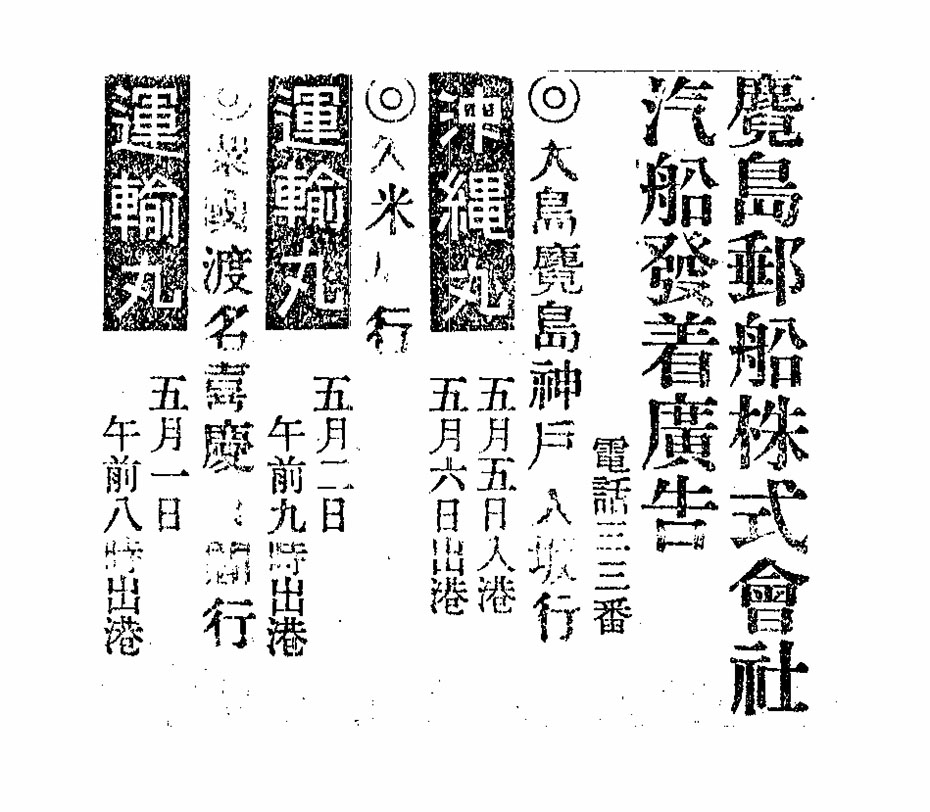 麑島郵船株式會社
汽船發着廣告
電話三三番
◎大島麑島神戶大坂行
沖縄丸
五月五日入港
五月六日出港
◎久米 行
運輸丸
五月二日
午前九時出港
◎ 渡名喜慶 間行
運輸丸
五月一日
午前八時出港